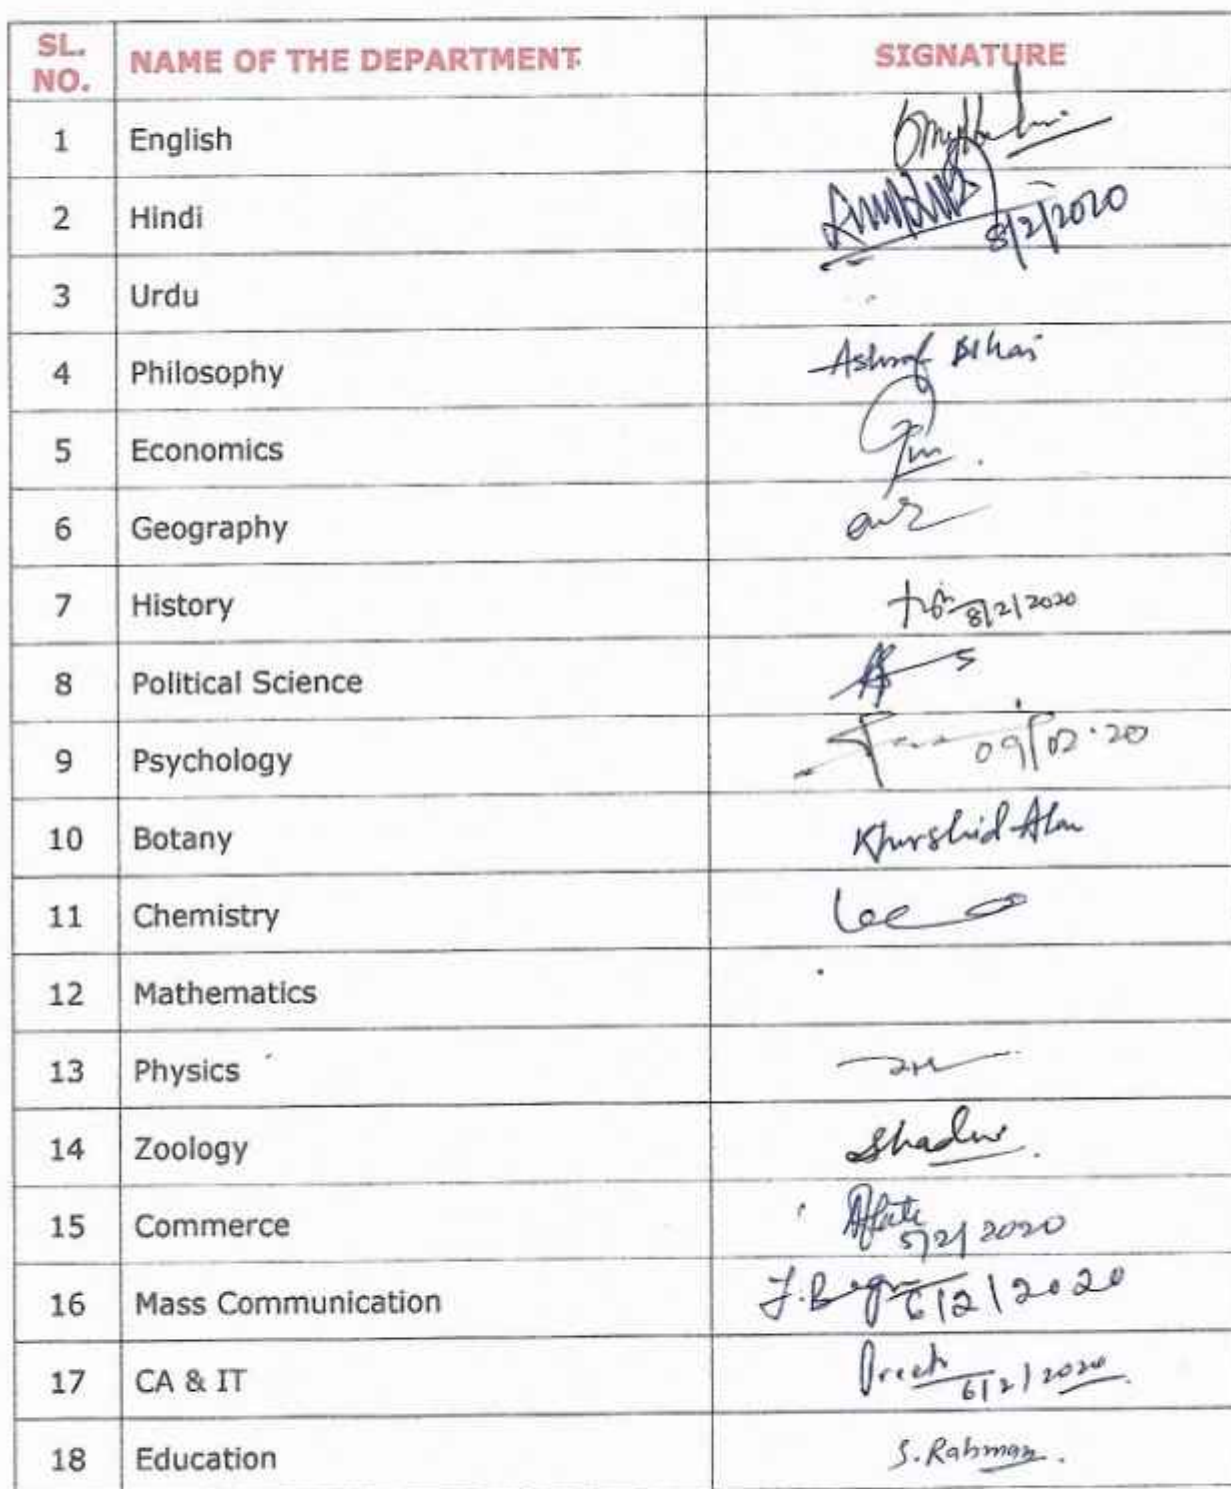 SL. NO. NAME OF THE DEPARTMENT SIGNATURE
1 English
2 Hindi 8/2/2020
3 Urdu
4 Philosophy Ashraf
5 Economics
6 Geography
7 History 8/2/2020
8 Political Science
9 Psychology 09/02.20
10 Botany Khurshid Alam
11 Chemistry
12 Mathematics
13 Physics
14 Zoology
15 Commerce 5/2/2020
16 Mass Communication 6/2/2020
17 CA & IT 6/2/2020
18 Education S. Rahman.